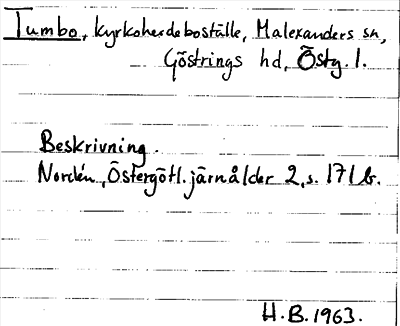 Tumbo, kyrkoherdeboställe, Malexanders sn,
Göstrings hd, Östg. l.
Beskrivning.
Nordén, Östergötl. järnålder 2, s. 171 b.
H.B. 1963.